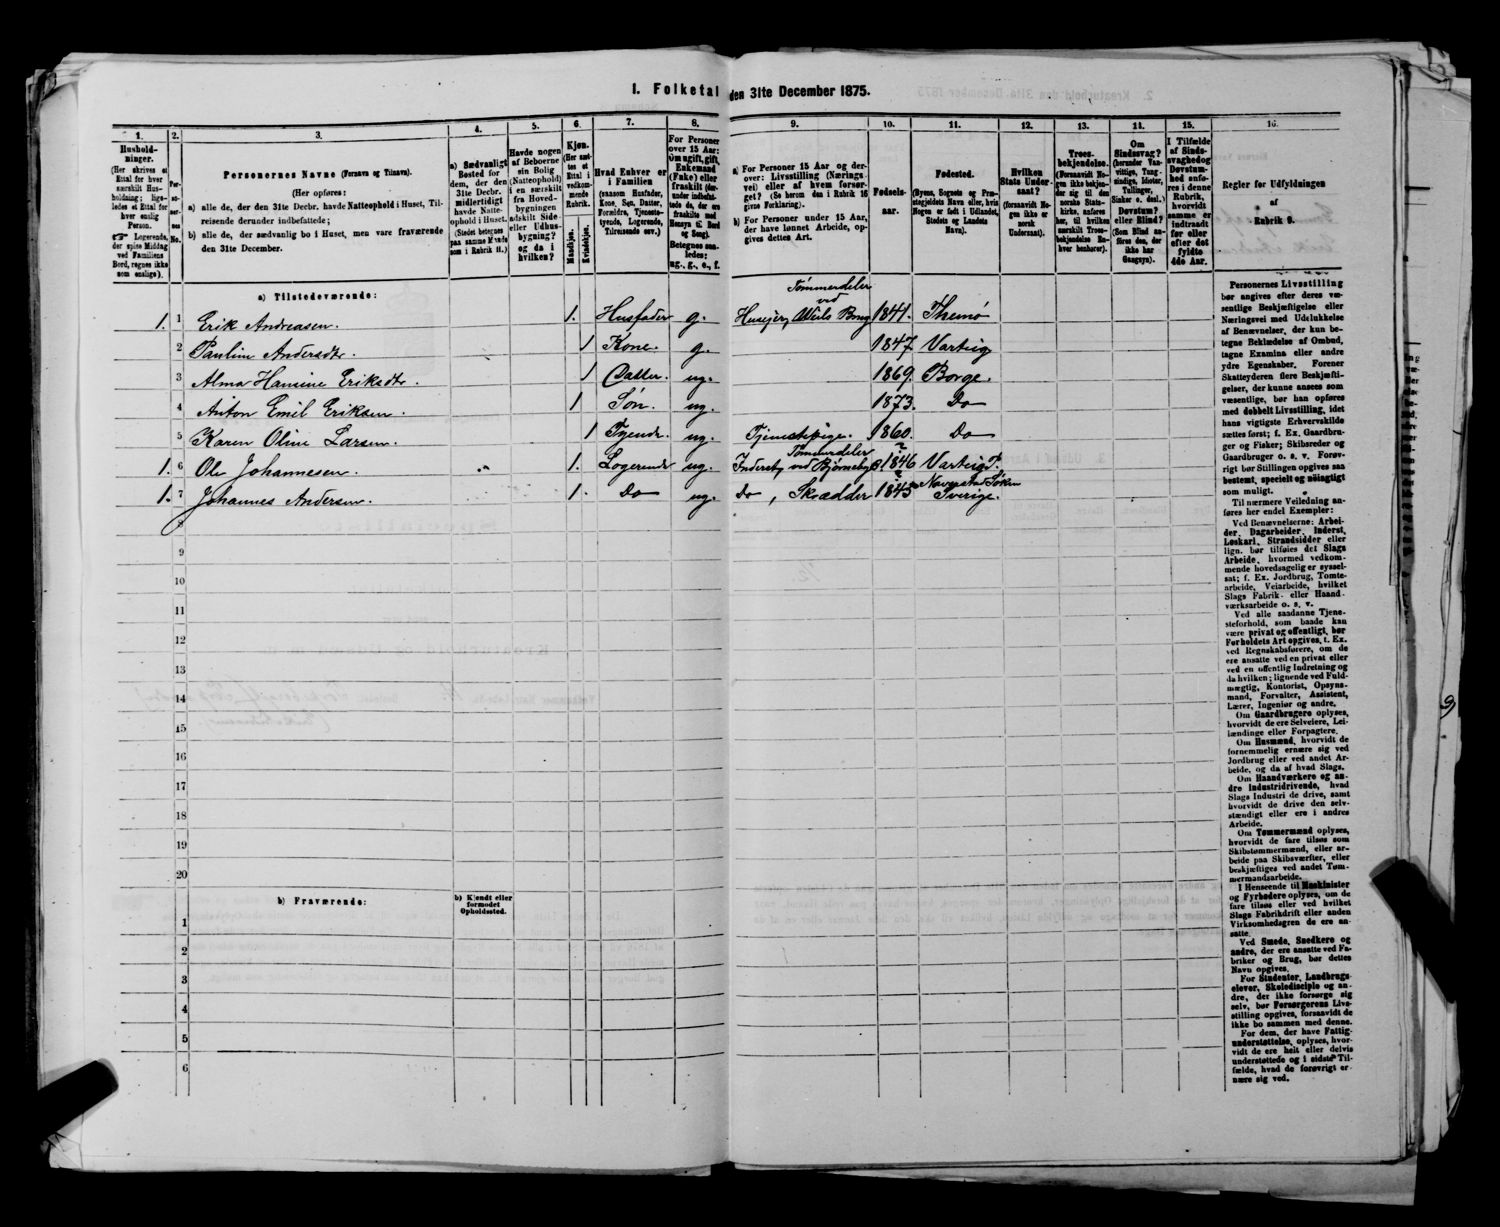 I. Folketal den 31te December 1875.
1. 2. 3. 4. 5. 6. 7. 8. 9. 10. 11. 12. 13. 14. 15. 16.
Hushold-
ninger.
(Her skrives et
Ettal for hver
særskilt Hus-
holdning; lige-
ledes et Ettal for
hver enslig
Person.
☞ Logerende,
der spise Middag
ved Familiens
Bord, regnes ikke
som enslige).
Per-
so-
ner-
nes
No.
Personernes Navne (Fornavn og Tilnavn).
(Her opføres:
a) alle de, der den 31te Decbr. havde Natteophold i Huset, Til-
reisende derunder indbefattede;
b) alle de, der sædvanlig bo i Huset, men vare fraværende
den 31te December.
a) Sædvanligt
Bosted for
dem, der den
31te Decbr.
midlertidigt
havde Natte-
ophold i Huset.
(Stedet betegnes
paa samme Maade
som i Rubrik 11.)
Havde nogen
af Beboerne
sin Bolig
(Natteophold)
i en særskilt
fra Hoved-
bygningen
adskilt Side-
eller Udhus-
bygning?
og da i
hvilken?
Kjøn.
(Her sæt-
tes et Ettal
i vedkom-
mende
Rubrik.
Mandkjøn.
Kvindekjøn.
Hvad Enhver er
i Familien
(saasom Husfader,
Kone, Søn, Datter,
Forældre, Tjeneste-
tyende, Logerende,
Tilreisende osv.)
For Personer
over 15 Aar:
Om ugift, gift,
Enkemand
(Enke) eller
fraskilt (der-
under indbefat-
tede de, der ere
fraskilte med
Hensyn til Bord
og Seng).
Betegnes saa-
ledes:
ug., g., e., f.
a) For Personer 15 Aar og der-
over: Livsstilling (Nærings-
vei) eller af hvem forsør-
get? (Se herom den i Rubrik 16
givne Forklaring).
b) For Personer under 15 Aar,
der have lønnet Arbeide, op-
gives dettes Art.
Fødsels-
aar.
Fødested.
(Byens, Sognets og Præ-
stegjældets Navn eller, hvis
Nogen er født i Udlandet,
Stedets og Landets
Navn).
Hvilken
Stats Under-
saat?
(forsaavidt No-
gen ikke er
norsk
Undersaat).
Troes-
bekjendelse.
(Forsaavidt No-
gen ikke bekjen-
der sig til den
norske Stats-
kirke, anføres
her, til hvilken
særskilt Troes-
bekjendelse En-
hver henhører).
Om
Sindssvag?
(herunder Van-
vittige, Tung-
sindige, Idioter,
Tullinger,
Sinker o. desl.)
Døvstum?
eller Blind?
(Som Blind an-
føres den, der
ikke har
Gangsyn).
I Tilfælde
af Sinds-
svaghed og
Døvstum-
hed anfø-
res i denne
Rubrik,
hvorvidt
samme er
indtraadt
før eller
efter det
fyldte
4de Aar.
Regler for Udfyldningen
af
Rubrik 9.
a) Tilstedeværende:
Tømmerdeler
ved
1. 1 Erik Andreasen. 1. Husfader g. Huseier, Weils Brug 1841. Themø
2 Pauline Andersdtr. 1 Kone. g. 1847 Varteig
3 Alma Hamine Eriksdtr. 1 Datter. ug. 1869. Borge.
4 Anton Emil Eriksen. 1 Søn. ug. 1873. Do
5 Karen Oline Larsen. 1 Tyende ug. Tjenestepige. 1860. Do
Tømmerdeler
1. 6 Ole Johannesen. 1. Logerende ug. Inderst, ved Bjørneby 1846 Varteig P.
1. 7 Johannes Andersen. 1. Do ug. Do, Skrædder 1845 Sverige.
8
9
10
11
12
13
14
15
16
17
18
19
20
b) Fraværende:
b) Kjendt eller
formodet
Opholdssted.
1
2
3
4
5
6
Personernes Livsstilling
bør angives efter deres væ-
sentlige Beskjæftigelse eller
Næringsvei med Udelukkelse
af Benævnelser, der kun be-
tegne Beklædelse af Ombud,
tagne Examina eller andre
ydre Egenskaber. Forener
Skatteyderen flere Beskjæfti-
gelser, der kunne ansees som
væsentlige, bør han opføres
med dobbelt Livsstilling, idet
hans vigtigste Erhvervskilde
sættes først; f. Ex. Gaardbru-
ger og Fisker; Skibsreder og
Gaardbruger o. s. v. Forøv-
rigt bør Stillingen opgives saa
bestemt, specielt og nøiagtigt
som muligt.
Til nærmere Veiledning an-
føres her endel Exempler:
Ved Benævnelserne: Arbei-
der, Dagarbeider, Inderst,
Løskarl, Strandsidder eller
lign. bør tilføies det Slags
Arbeide, hvormed vedkom-
mende hovedsagelig er syssel-
sat; f. Ex. Jordbrug, Tomte-
arbeide, Veiarbeide, hvilket
Slags Fabrik- eller Haand-
værksarbeide o. s. v.
Ved alle saadanne Tjene-
steforhold, som baade kan
være privat og offentligt, bør
Forholdets Art opgives, t. Ex.
ved Regnskabsførere, om de
ere ansatte ved en privat eller
ved en offentlig Indretning og
da hvilken; lignende ved Fuld-
mægtig, Kontorist, Opsyns-
mand, Forvalter, Assistent,
Lærer, Ingeniør og andre.
Om Gaardbrugere oplyses,
hvorvidt de ere Selveiere, Lei-
lændinge eller Forpagtere.
Om Husmænd, hvorvidt de
fornemmelig ernære sig ved
Jordbrug eller ved andet Ar-
beide, og da af hvad Slags.
Om Haandværkere og an-
dre Industridrivende, hvad
Slags Industri de drive, samt
hvorvidt de drive den selv-
stændigt eller ere i andres
Arbeide.
Om Tømmermænd oplyses,
hvorvidt de fare tilsøs som
Skibstømmermænd, eller ar-
beide paa Skibsværfter, eller
beskjæftiges ved andet Tøm-
mermandsarbeide.
I Henseende til Maskinister
og Fyrbødere oplyses, om de
fare tilsøs eller ved hvilket
Slags Fabrikdrift eller anden
Virksomhedsgren de ere an-
satte.
Ved Smede, Snedkere og
andre, der ere ansatte ved Fa-
briker og Brug, bør dettes
Navn opgives.
For Studenter, Landbrugs-
elever, Skoledisciple og an-
dre, der ikke forsørge sig
selv, bør Forsørgerens Livs-
stilling opgives, forsaavidt de
ikke bo sammen med denne.
For dem, der have Fattig-
understøttelse, oplyses, hvor-
vidt de ere helt eller delvis
understøttede og i sidste Til-
fælde, hvad de forøvrigt er-
nære sig ved.